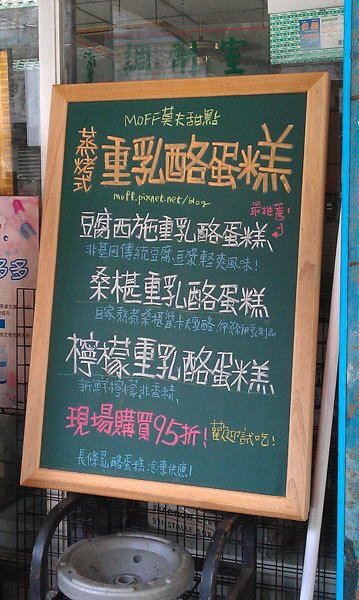 調劑室
MOFF莫夫甜點
蒸烤式
重乳酪蛋糕
moff.pixnet.net/blog
最推薦!
豆腐西施重乳酪蛋糕
非基因傳統豆腐、豆漿輕爽風味!
桑椹重乳酪蛋糕
自家熬煮桑椹醬
檸檬重乳酪蛋糕
新鮮檸檬非香精、
現場購買95折!
歡迎試吃!
長條乳酪蛋糕冷凍供應!
多多